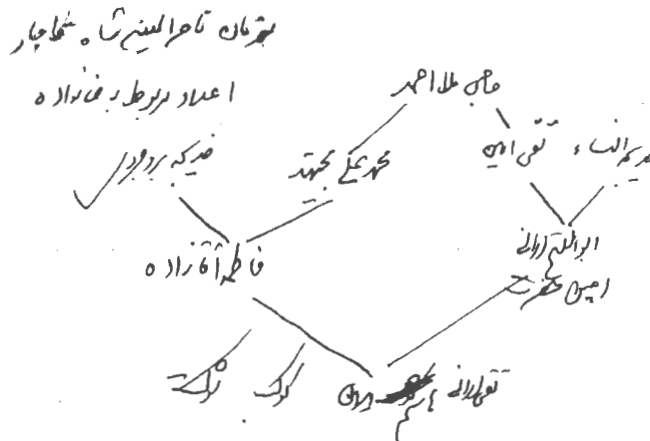 بفرمان ناصرالدین شاه قاجار
اعداد مربوط به خانواده
حاجی ملا احمد
خدیجه بروجرد
محمد علی مجتهد
تقی امین
مریم النساء
فاطمه آقازاده
ابوالفتح ارانی
امین حضرت
نزهت
کوکب
تقی ارانی